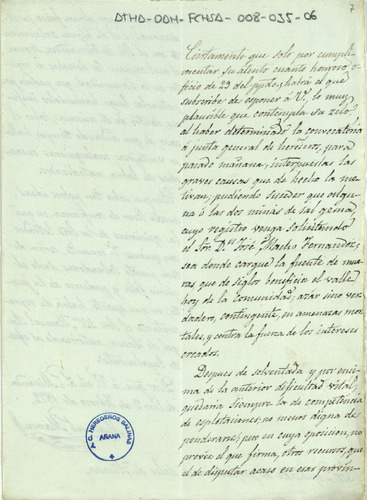 ATHA-DAH-FCHSA-008-035-06
7
Ciertamente que solo por cumpli-
mentar su atento cuanto honroso, o-
ficio de 29 del ppdo, habrá el que
subscribe de esponer á V. lo muy
plausible que contempla su zelo
al haber determinado la convocatoria
á junta general de herederos, para
pasado mañana, interpuestas las
graves causas que de hecho la mo-
tivan; pudiendo suceder que alguna
ó las dos minas de sal gema,
cuyo registro venga solicitándolo
el Sor. Dn. José Fernandez,
sea donde cargue la fuente de mue-
ras, que de siglos beneficia el valle
hoy de la Comunidad; azar sino ver-
dadero, contingente, en amenazas mor-
tales, y contra la fuerza de los intereses
creados.
Despues de solventada y por enci-
ma de la anterior dificultad vital,
quedaria siempre la de competencia
de esplotaciones, no menos digna de
ponderarse; pero en cuya oposicion, no
provee el que firma, otros recursos, que
el de disputar acaso en esas provin-
A.C. HEREDEROS SALINAS
AÑANA